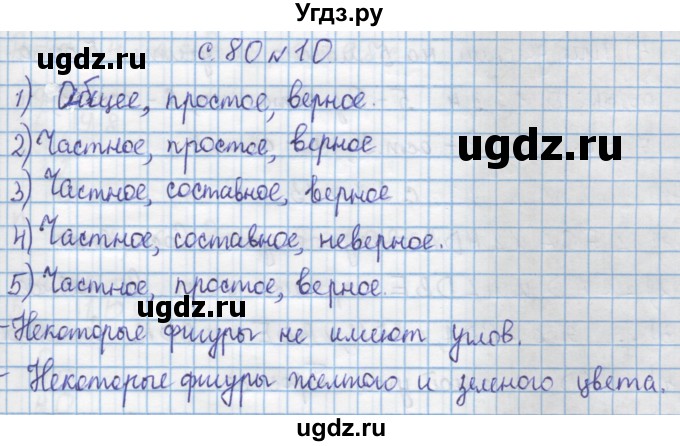 Угдз.ру
с. 80 № 10
угдз.ru
1) Общее, простое, верное.
угдз.ru
2) Частное, простое, верное
угдз.ru
3) Частное, составное, верное
4) Частное, составное, неверное.
угдз.ru
5) Частное, простое, верное.
угдз.ru
-Некоторые фигуры не имеют углов.
- Некоторые фигуры желтого и зеленого цвета.
угдз.ru
угдз.ru